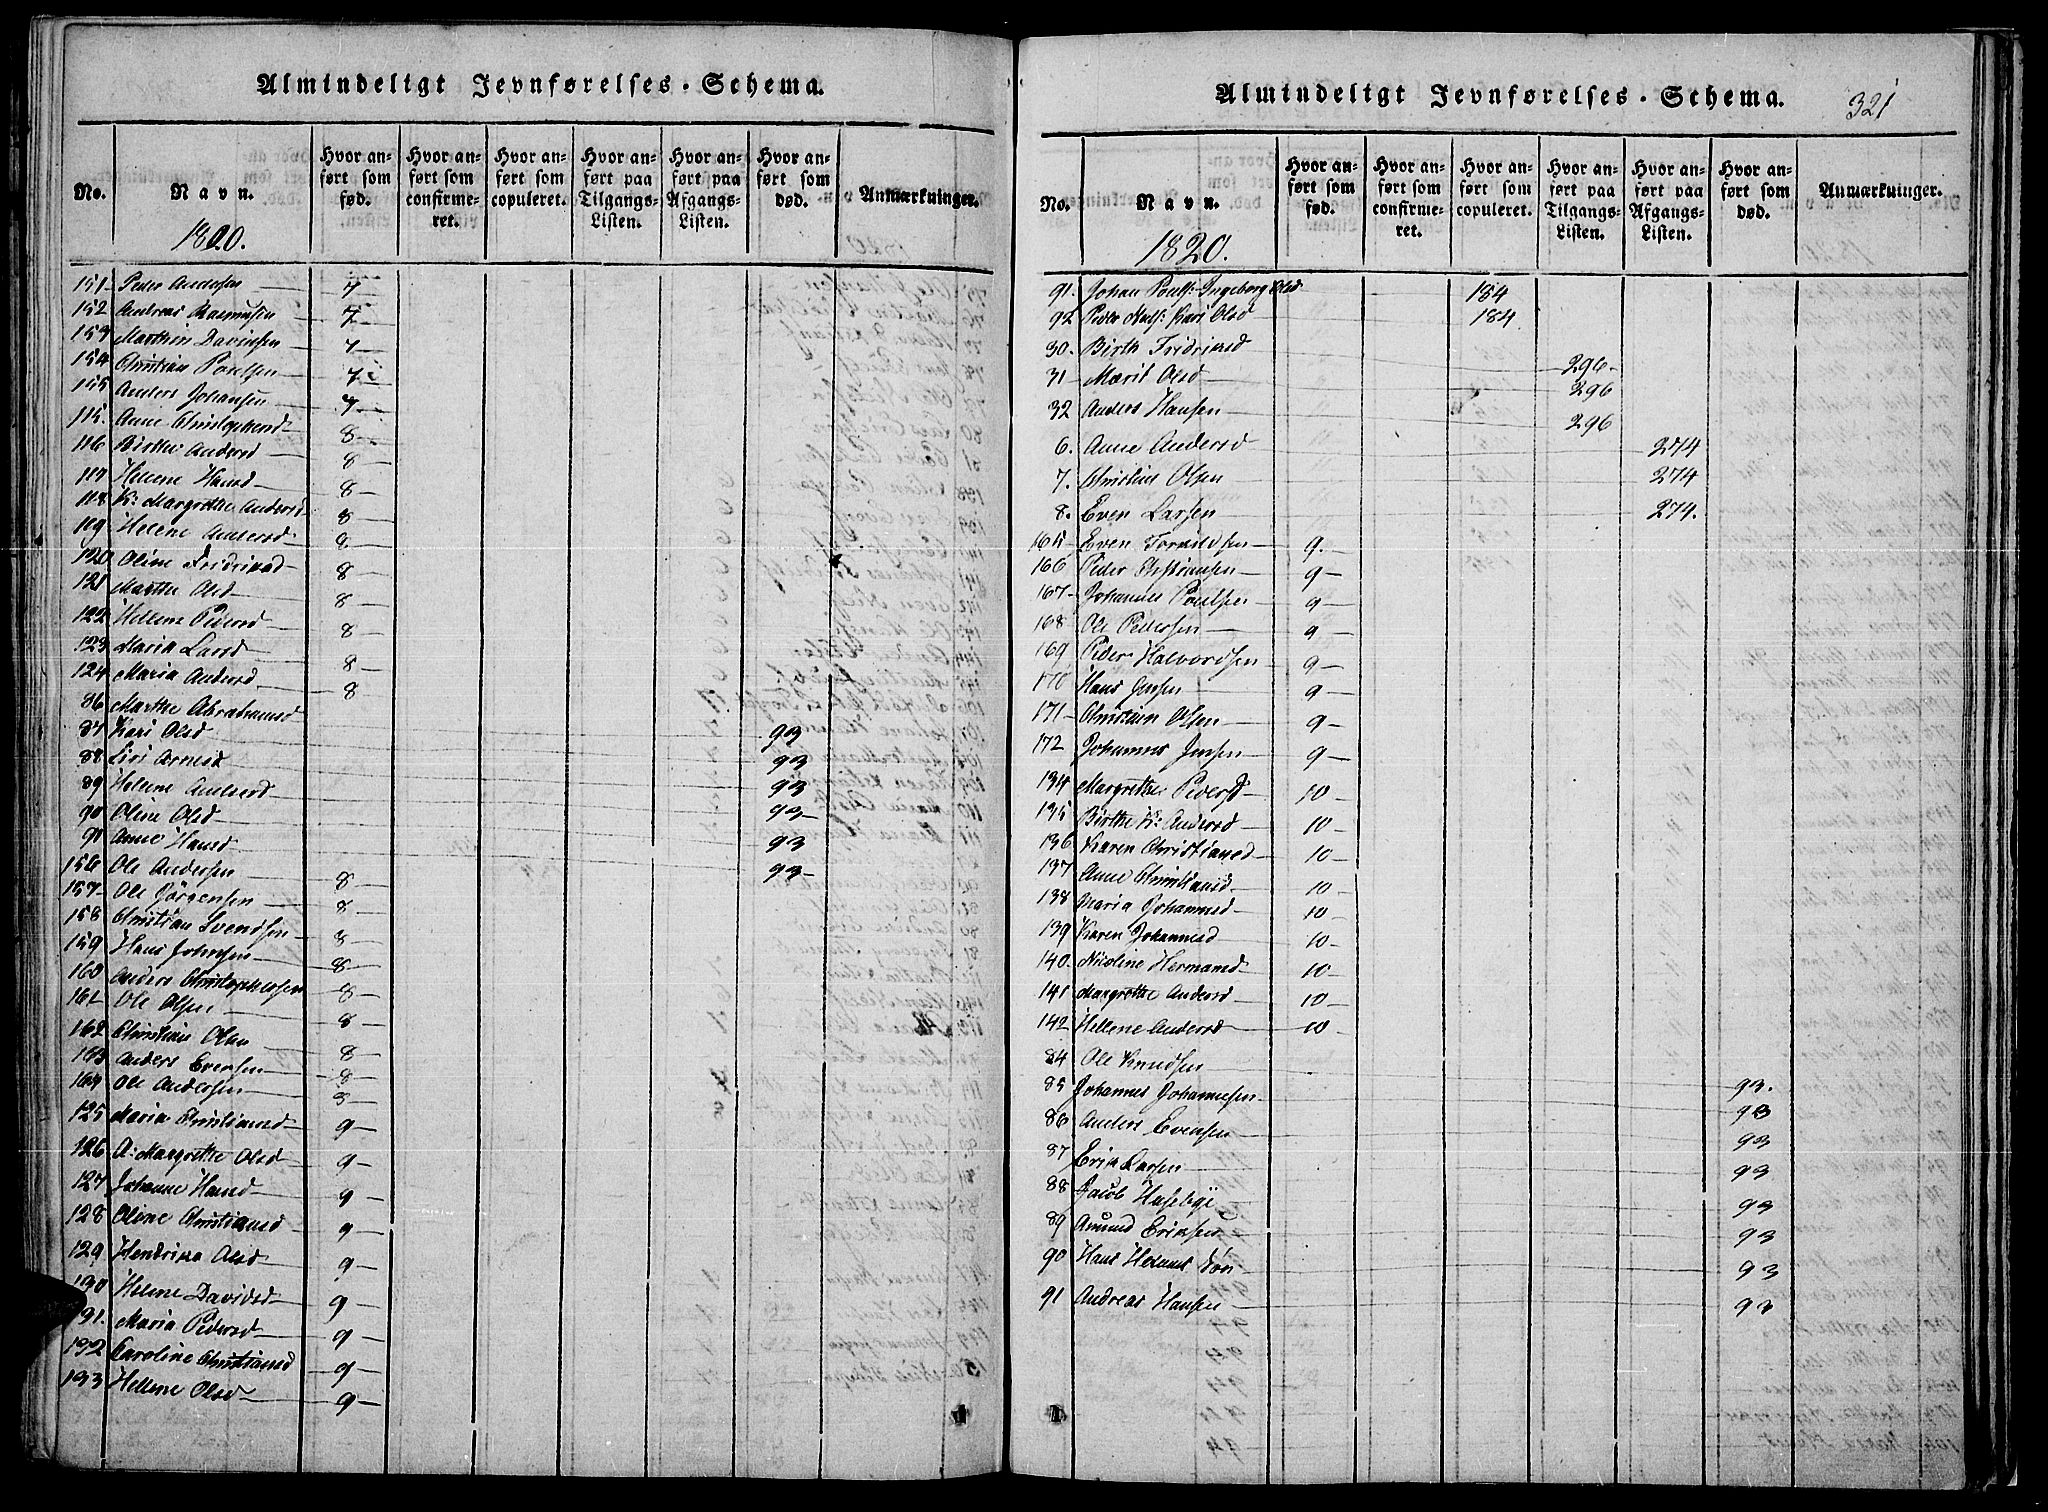 Almindeligt Jevnførelses-Schema.
No.
Navn.
Hvor anført som fød.
Hvor anført som confirmeret.
Hvor anført som copuleret.
Hvor anført paa Tilgangs-Listen.
Hvor anført paa Afgangs-Listen.
Hvor anført som død.
Anmærkninger.
1820.
151 Peder Andersen 7
152 Andreas Rasmusen 7
153 Marthin Davidsen 7
154 Christian Poulsen 7
155 Anders Johansen 7
115. Anne Christophersd 8
116 Birthe Andersd 8
117 Hellene Hansd 8
118 K: Margrethe Andersd 8
119 Helene Andersd 8
120 Oline Fridriksd 8
121 Marthe Olsd 8
122 Hellene Pedersd 8
123 Maria Larsd 8
124 Maria Andersd 8
86 Marthe Abrahamsd 93
87 Kari Olsd 93
88 Siri Arnesd 93
89 Helene Andersd 93
90 Oline Olsd 93
91 Anne Hansd 93
156 Ole Andersen 8
157 Ole Jörgensen 8
158 Christian Svendsen 8
159 Hans Johnsen 8
160 Anders Christophersen 8
161 Ole Olsen 8
162 Christian Olsen 8
163 Anders Evensen 8
164 Ole Andersen 8
125 Maria Christiansd 9
126 A: Margrethe Olsd 9
127 Johanne Hansd 9
128 Oline Christiansd 9
129 Hendrikka Olsd 9
130 Helene Davidsd 9
131. Maria Pedersd 9
132 Caroline Christiansd 9
133 Hellene Olsd 9
Almindeligt Jevnførelses-Schema.
321
No.
Navn.
Hvor anført som fød.
Hvor anført som confirmeret.
Hvor anført som copuleret.
Hvor anført paa Tilgangs-Listen.
Hvor anført paa Afgangs-Listen.
Hvor anført som død.
Anmærkninger.
1820.
91. Johan Pouls: Ingeborg Olsd 184
92 Peder Knuds: Kari Olsd 184
30. Birth Fridriksd 296
31 Marit Olsd 296
32 Anders Hansen 296
6. Anne Andersd 274
7. Christian Olsen 274
8. Even Larsen 274.
165 Even 9.
166 Peder Christiansen 9
167 Johannes Poulsen 9
168 Ole Pedersen 9
169 Peder Halvordsen 9
170 Hans Jensen 9
171 Christian Olsen 9
172 Johannes Jensen 9
134 Margrethe Pedersd 10
135 Birthe K: Andersd 10
136 Karen Christiansd 10
137 Anne Christiansd 10
138 Maria Johannesd 10
139 Karen Johannesd 10
140. Nicoline Hermansd 10
141 Margrethe Andersd 10
142 Hellene Andersd 10
84 Ole Knudsen 93.
85 Johannes Johannesen 93
86 Anders Evensen 93
87 Erik Larsen 93
88 Jacob Haseby 93
89 Amund Eriksen 93
90 Hans Hermans Søn 93
91 Andreas Hansen 93